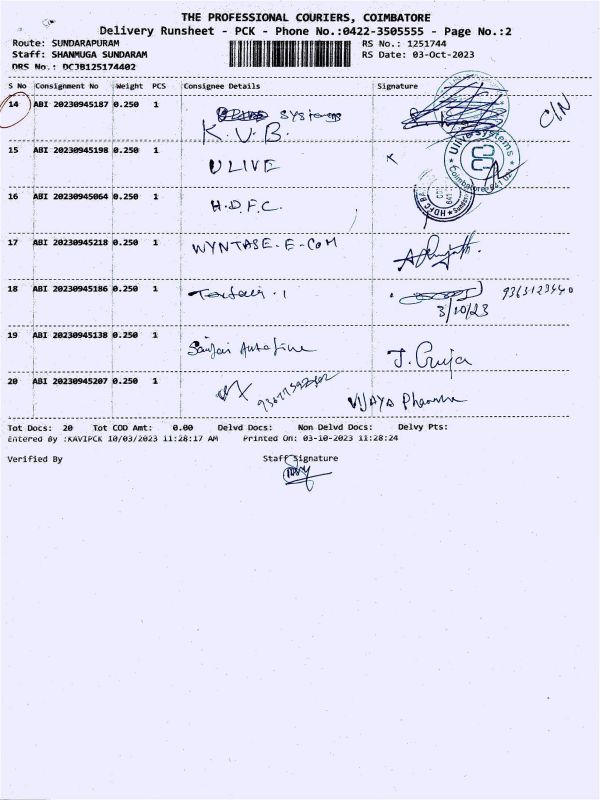 THE PROFESSIONAL COURIERS, COIMBATORE
Delivery Runsheet - PCK - Phone No.:0422-3505555 - Page No.:2
Route: SUNDARAPURAM RS No.: 1251744
Staff: SHANMUGA SUNDARAM RS Date: 03-Oct-2023
DRS No.: DCJB125174402
S No Consignment No Weight PCS Consignee Details Signature
14 ABI 20230945187 0.250 1 Systems
K.V.B. C/N
15 ABI 20230945198 0.250 1 ULIVE Ulive Systems Coimbatore
16 ABI 20230945064 0.250 1 H.D.F.C. HDFC
17 ABI 20230945218 0.250 1 WYNTASE-E-COM
18 ABI 20230945186 0.250 1
3/10/23
19 ABI 20230945138 0.250 1
20 ABI 20230945207 0.250 1 VIJAYA Pharma
Tot Docs: 20 Tot COD Amt: 0.00 Delvd Docs: Non Delvd Docs: Delvy Pts:
Entered By :KAVIPCK 10/03/2023 11:28:17 AM Printed On: 03-10-2023 11:28:24
Verified By Staff Signature